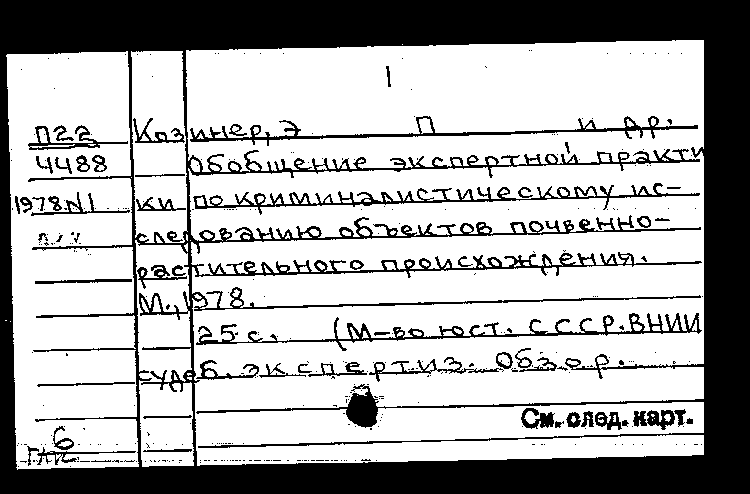 1
П22 Казинер, Э П и др.
4488 Обобщение экспертной практи
1978 N1 ки по криминалистическому ис-
следованию объектов почвенно-
растительного происхождения.
М., 1978.
25 с. (М-во юст. СССР. ВНИИ
судеб. экспертиз. Обзор.
См. след. карт.
6